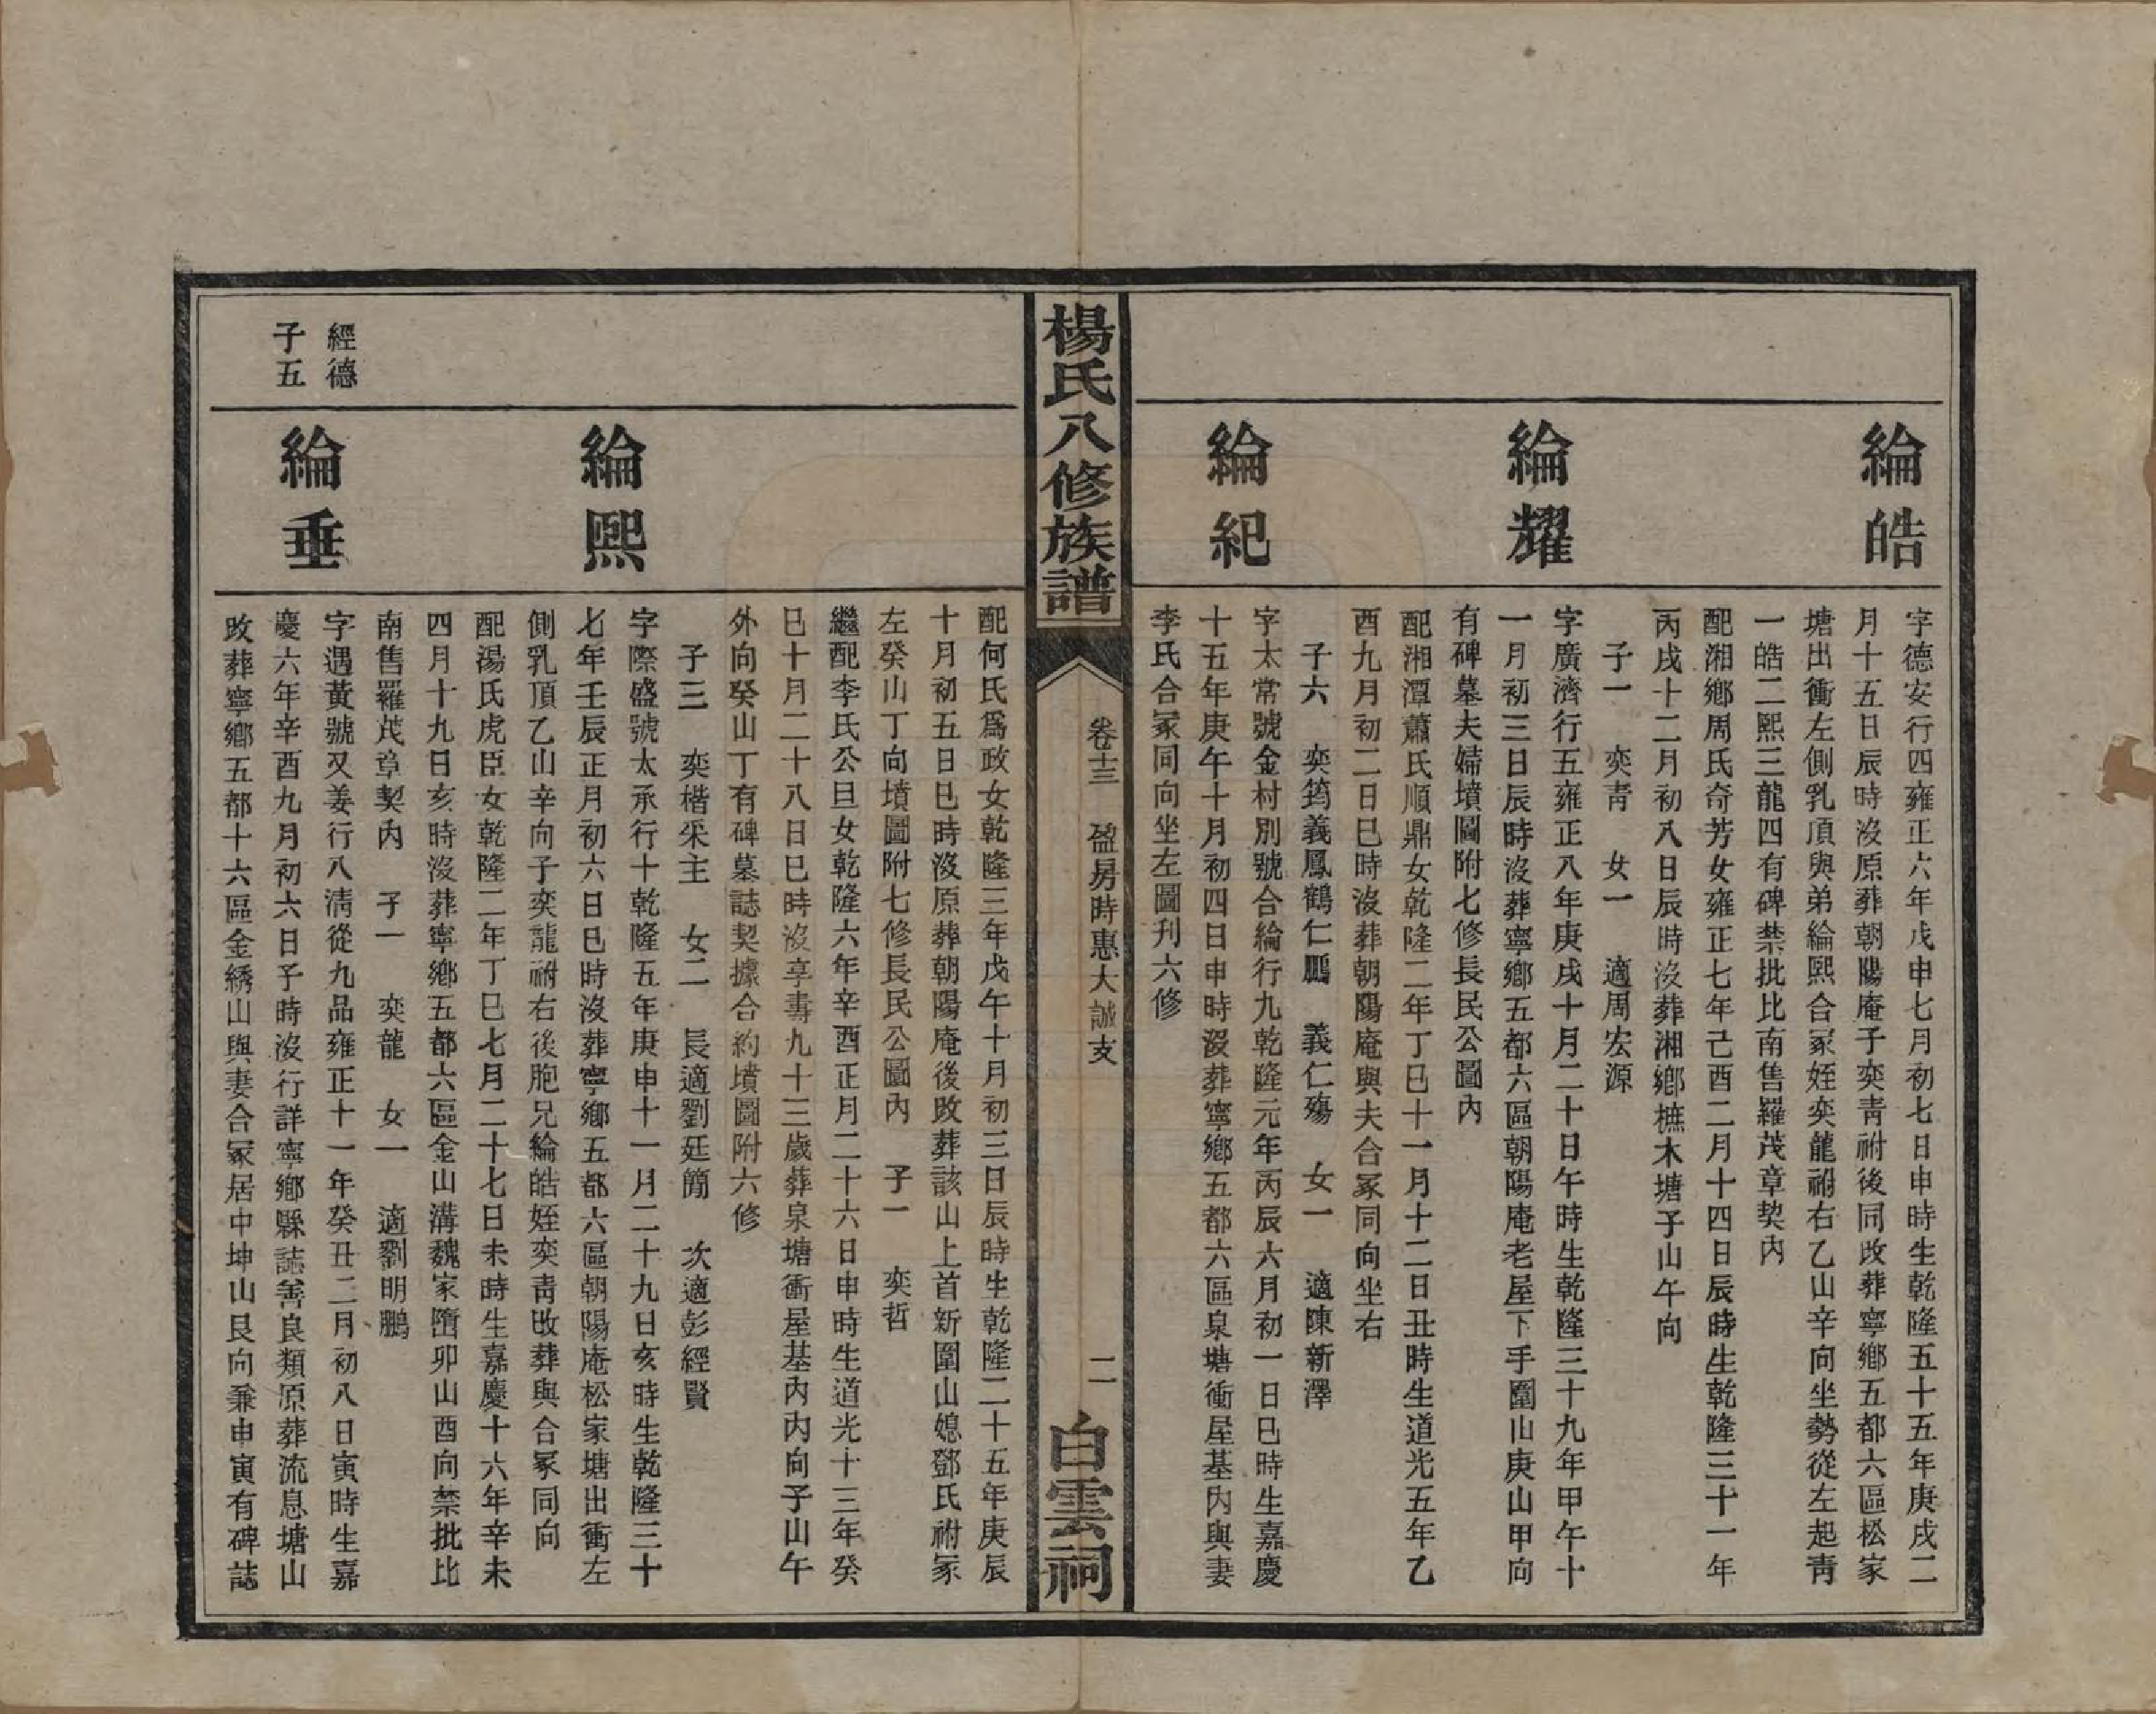 綸皓
字德安行四雍正六年戊申七月初七日申時生乾隆五十五年庚戌二
月十五日辰時沒原葬朝陽庵子奕靑祔後同改葬寧鄉五都六區松家
塘出衝左側乳頂與弟綸熙合冢姪奕龍祔右乙山辛向坐勢從左起靑
一皓二熙三龍四有碑禁批比南售羅茂章契內
配湘鄉周氏奇芳女雍正七年己酉二月十四日辰時生乾隆三十一年
丙戌十二月初八日辰時沒葬湘鄉樵木塘子山午向
子一　奕靑　女一　適周宏源
綸耀
字廣濟行五雍正八年庚戌十月二十日午時生乾隆三十九年甲午十
一月初三日辰時沒葬寧鄉五都六區朝陽庵老屋下手圍山庚山甲向
有碑墓夫婦墳圖附七修長民公圖內
配湘潭蕭氏順鼎女乾隆二年丁巳十一月十二日丑時生道光五年乙
酉九月初二日巳時沒葬朝陽庵與夫合冢同向坐右
子六　奕筠義鳳鶴仁鵬　義仁殤　女一　適陳新澤
綸紀
字太常號金村別號合綸行九乾隆元年丙辰六月初一日巳時生嘉慶
十五年庚午十月初四日申時沒葬寧鄉五都六區泉塘衝屋基內與妻
李氏合冢同向坐左圖刋六修
楊氏八修族譜
卷十三　盈房時惠大誠支
二
白雲祠
配何氏爲政女乾隆三年戊午十月初三日辰時生乾隆二十五年庚辰
十月初五日巳時沒原葬朝陽庵後改葬該山上首新圍山媳鄧氏祔冢
左癸山丁向墳圖附七修長民公圖內　子一　奕哲
繼配李氏公旦女乾隆六年辛酉正月二十六日申時生道光十三年癸
巳十月二十八日巳時沒享壽九十三歲葬泉塘衝屋基內內向子山午
外向癸山丁有碑墓誌契據合約墳圖附六修
子三　奕楷采主　女二　長適劉廷簡　次適彭經賢
綸熙
字際盛號太承行十乾隆五年庚申十一月二十九日亥時生乾隆三十
七年壬辰正月初六日巳時沒葬寧鄉五都六區朝陽庵松家塘出衝左
側乳頂乙山辛向子奕龍祔右後胞兄綸皓姪奕靑改葬與合冢同向
配湯氏虎臣女乾隆二年丁巳七月二十七日未時生嘉慶十六年辛未
四月十九日亥時沒葬寧鄉五都六區金山溝魏家墮卯山酉向禁批比
南售羅茂章契內　子一　奕龍　女一　適劉明鵬
經德
子五
綸垂
字遇黃號又姜行八淸從九品雍正十一年癸丑二月初八日寅時生嘉
慶六年辛酉九月初六日子時沒行詳寧鄉縣誌善良類原葬流息塘山
改葬寧鄉五都十六區金綉山與妻合冢居中坤山艮向兼申寅有碑誌